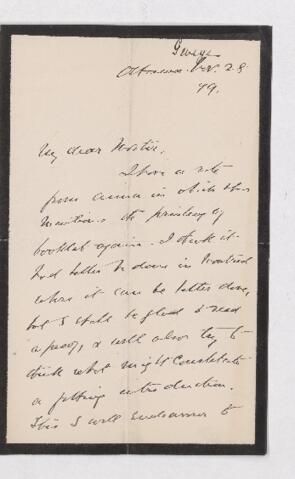 George
Ottawa. Nov. 28
79.
My dear
I have a note
from Anna in which she
mentions the printing of
booklet again. I think it
had better be done in Montreal
where it can be better done,
but I shall be glad to read
a proof, & will also try to
think what might constitute
a fitting introduction.
This I will endeavour to